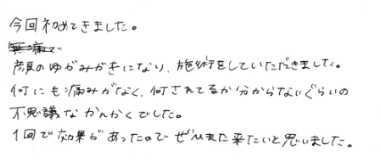 今回初めてきました。
無痛で
顔のゆがみがきになり、施術をしていただきました。
何にも痛みがなく、何されてるか分からないぐらいの
不思議なかんかくでした。
1回で効果があったのでぜひまた来たいと思いました。